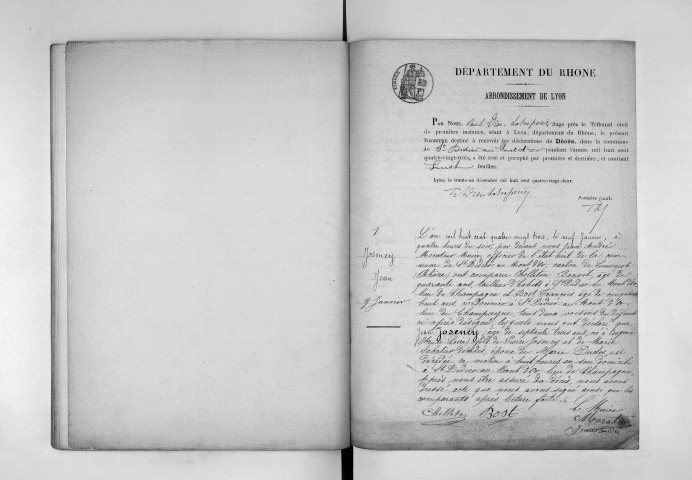 DÉPARTEMENT DU RHONE
ARRONDISSEMENT DE LYON
PAR NOUS, Paul Dieu Juge près le Tribunal civil
de première instance, séant à Lyon, département du Rhône, le présent
REGISTRE destiné à recevoir les déclarations de Décès, dans la commune
de St Didier au Mont d'or pendant l'année mil huit cent
quatre-vingt-trois, a été coté et paraphé par première et dernière, et contient
feuilles.
Lyon, le trente-un décembre mil huit cent quatre-vingt-deux.
Première feuille.
1
Josency
Jean
9 Janvier
L'an mil huit cent quatre vingt trois, le neuf Janvier, à
quatre heures du soir, par devant nous Jean André
Maire, officier de l'état civil de la com
mune de St Didier au Mont d'Or, canton de Limonest
(Rhône) ont comparu Benoit, âgé de
quarante ans, tailleur d'habits à St Didier au Mont d'Or
lieu de Champagne et Bost François âgé de
huit ans à St Didier au Mont d'Or
lieu de Champagne, tous deux voisins du défunt
ci après désigné, lesquels nous ont déclaré que
Josency, âgé de septante trois ans, né à
Loire, fils de Pierre Josency et de Marie
décédés, époux de Marie est
décédé ce matin à huit heures en son domicile
à St Didier au Mont d'Or lieu de Champagne,
Après nous être assuré du décès, nous avons
dressé acte que nous avons signé ainsi que les
comparants après lecture faite.
Bost
Le Maire